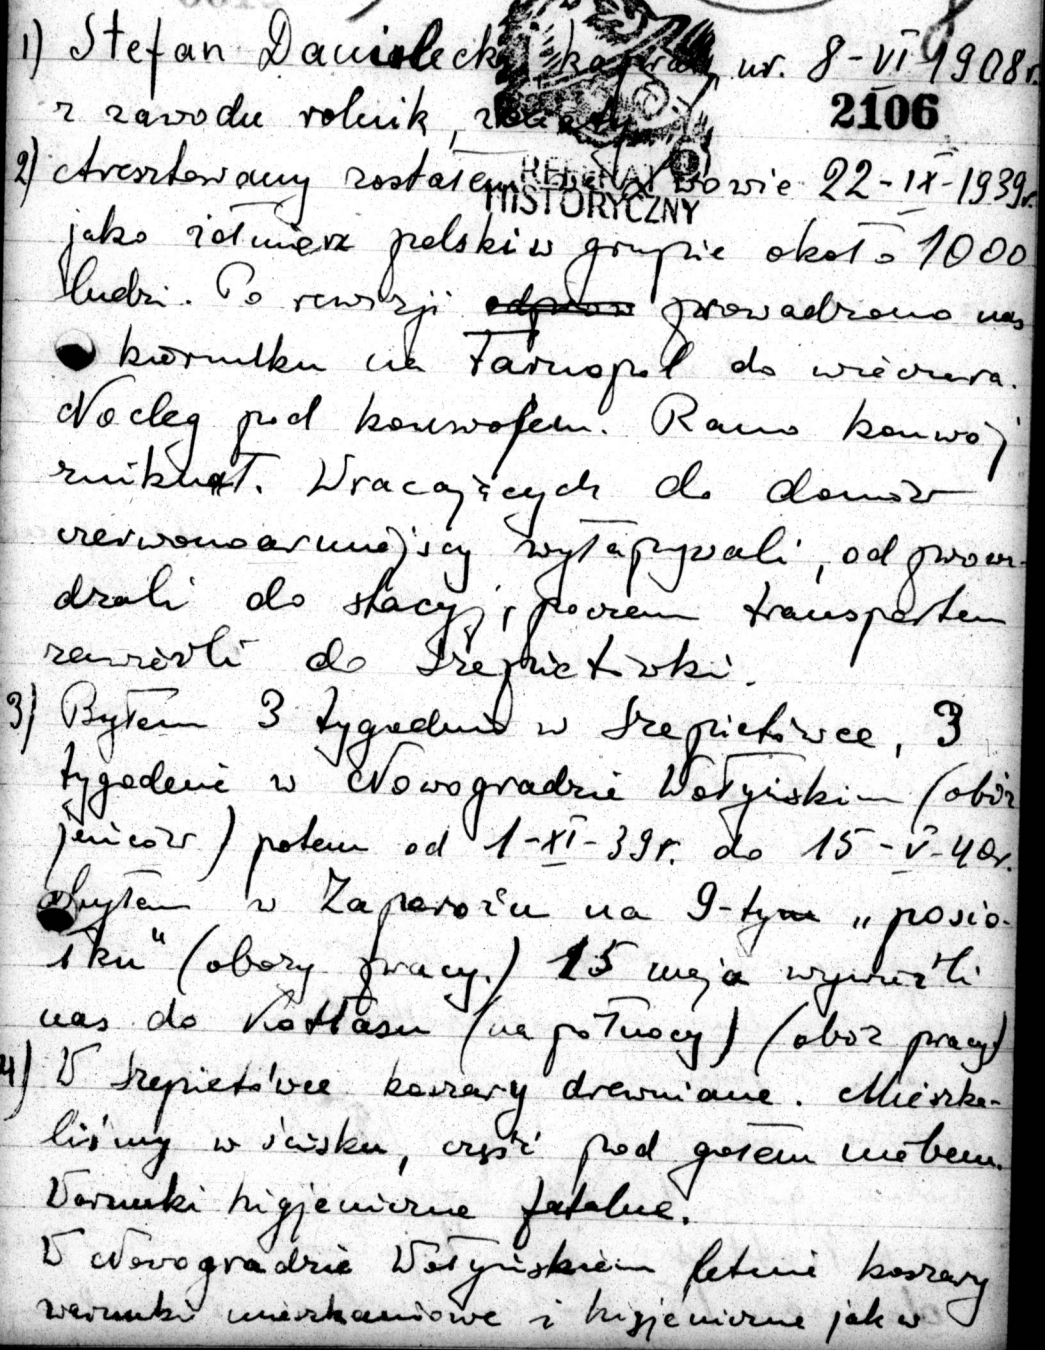 1) Stefan Danielecki, kapral, ur. 8-VI 1908r.
2106
z zawodu rolnik, żonaty
REFERAT
HISTORYCZNY
2) Aresztowany zostałem we Lwowie 22-IX-1939r.
jako żołnierz polski w grupie około 1000
ludzi. Po rewizji prowadzono nas
kierunku na Tarnopol do wieczora.
Nocleg pod konwojem. Rano konwój
zniknął. Wracających do domów
czerwonoarmiejscy wyłapywali, odprowa-
dzali do stacyj, poczem transportem
zawieźli do Szepietówki.
3) Byłem 3 tygodnie w Szepietówce, 3
tygodnie w Nowogradzie Wołyńskim (obóz
jeńców) potem od 1-XI-39r. do 15-V-40r.
byłem w Zaporożu na 9-tym „posio-
łku" (obozy pracy.) 15 maja wywieźli
nas do Kotłasu (na północy) (obóz pracy)
4) W Szepietówce koszary drewniane. Mieszka-
liśmy w ścisku, część pod gołem niebem.
Warunki higjeniczne fatalne.
W Nowogradzie Wołyńskiem letnie koszary
warunki mieszkaniowe i higjeniczne jak w